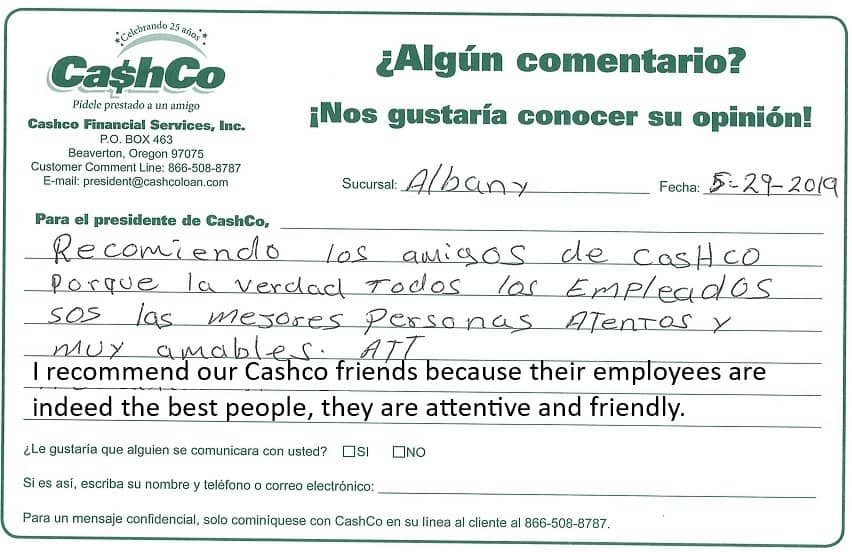 ★Celebrando 25 años★
Ca$hCo
Pídele prestado a un amigo
Cashco Financial Services, Inc.
P.O. BOX 463
Beaverton, Oregon 97075
Customer Comment Line: 866-508-8787
E-mail: president@cashcoloan.com
¿Algún comentario?
¡Nos gustaría conocer su opinión!
Sucursal: Albany Fecha: 5-29-2019
Para el presidente de CashCo,
Recomiendo los amigos de CasHco
Porque la verdad Todos los EMPleados
sos las mejores Personas ATenTos y
muy amables. ATT
I recommend our Cashco friends because their employees are
indeed the best people, they are attentive and friendly.
¿Le gustaría que alguien se comunicara con usted? ☐SI ☐NO
Si es así, escriba su nombre y teléfono o correo electrónico:
Para un mensaje confidencial, solo cominíquese con CashCo en su línea al cliente al 866-508-8787.